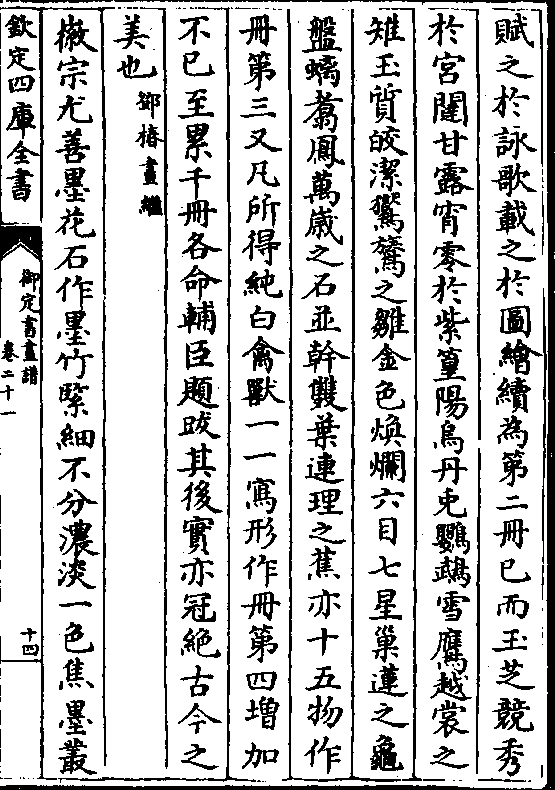 賦之於詠歌載之於圖繪續為第二冊已而玉芝競秀
於宮闥甘露宵零於紫篁陽烏丹兎鸚鵡雪鷹越裳之
雉玉質皎潔鸑鷟之雛金色煥爛六目七星巢蓮之龜
盤螭翥鳳萬歲之石並幹雙葉連理之蕉亦十五物作
冊第三又凡所得純白禽獸一一寫形作冊第四增加
不已至累千冊各命輔臣題跋其後實亦冠絶古今之
美也鄧椿畫繼
徽宗尤善墨花石作墨竹緊細不分濃淡一色焦墨叢
欽定四庫全書
御定書畫譜
卷二十一
十四